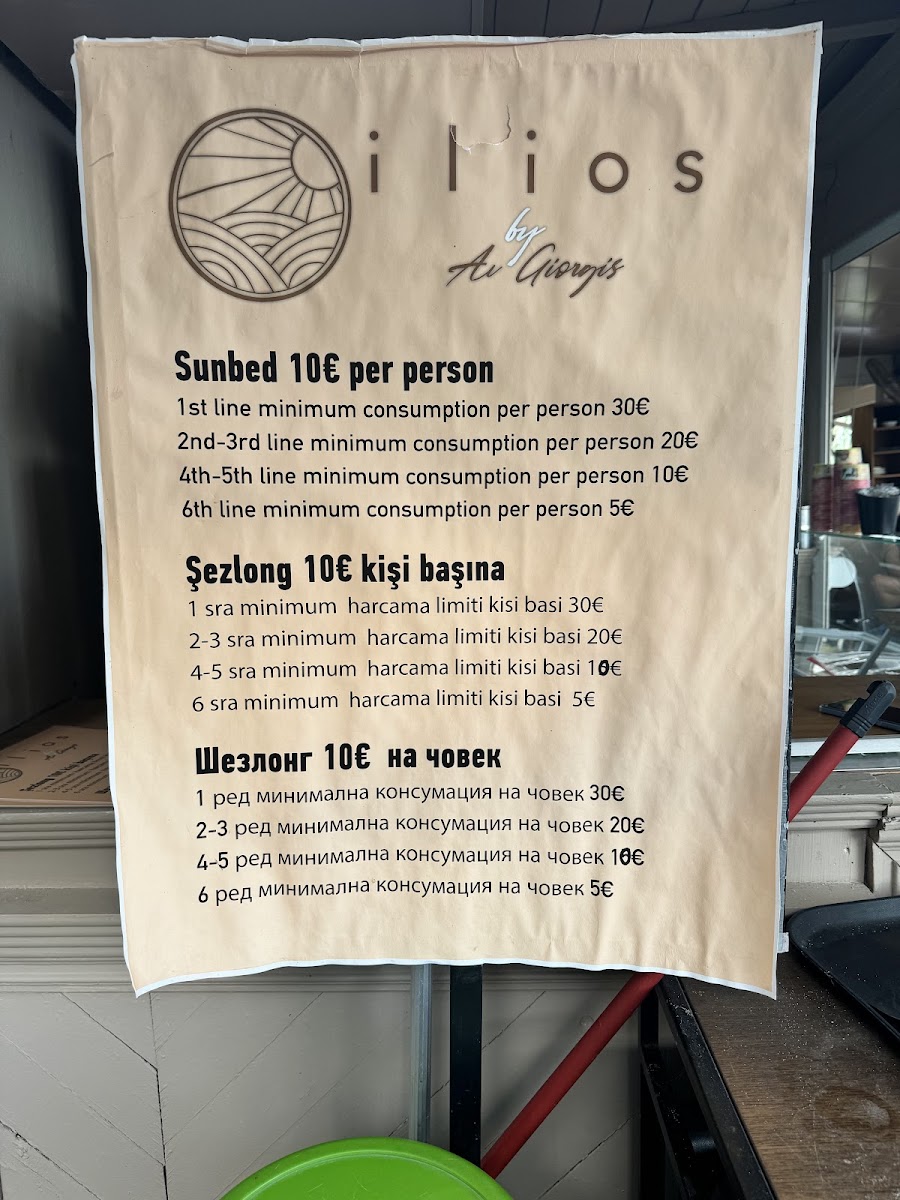 ilios
by
Αι Giorgis
Sunbed 10€ per person
1st line minimum consumption per person 30€
2nd-3rd line minimum consumption per person 20€
4th-5th line minimum consumption per person 10€
6th line minimum consumption per person 5€
Şezlong 10€ kişi başına
1 sra minimum harcama limiti kisi basi 30€
2-3 sra minimum harcama limiti kisi basi 20€
4-5 sra minimum harcama limiti kisi basi 10€
6 sra minimum harcama limiti kisi basi 5€
Шезлонг 10€ на човек
1 ред минимална консумация на човек 30€
2-3 ред минимална консумация на човек 20€
4-5 ред минимална консумация на човек 10€
6 ред минимална консумация на човек 5€
ilios